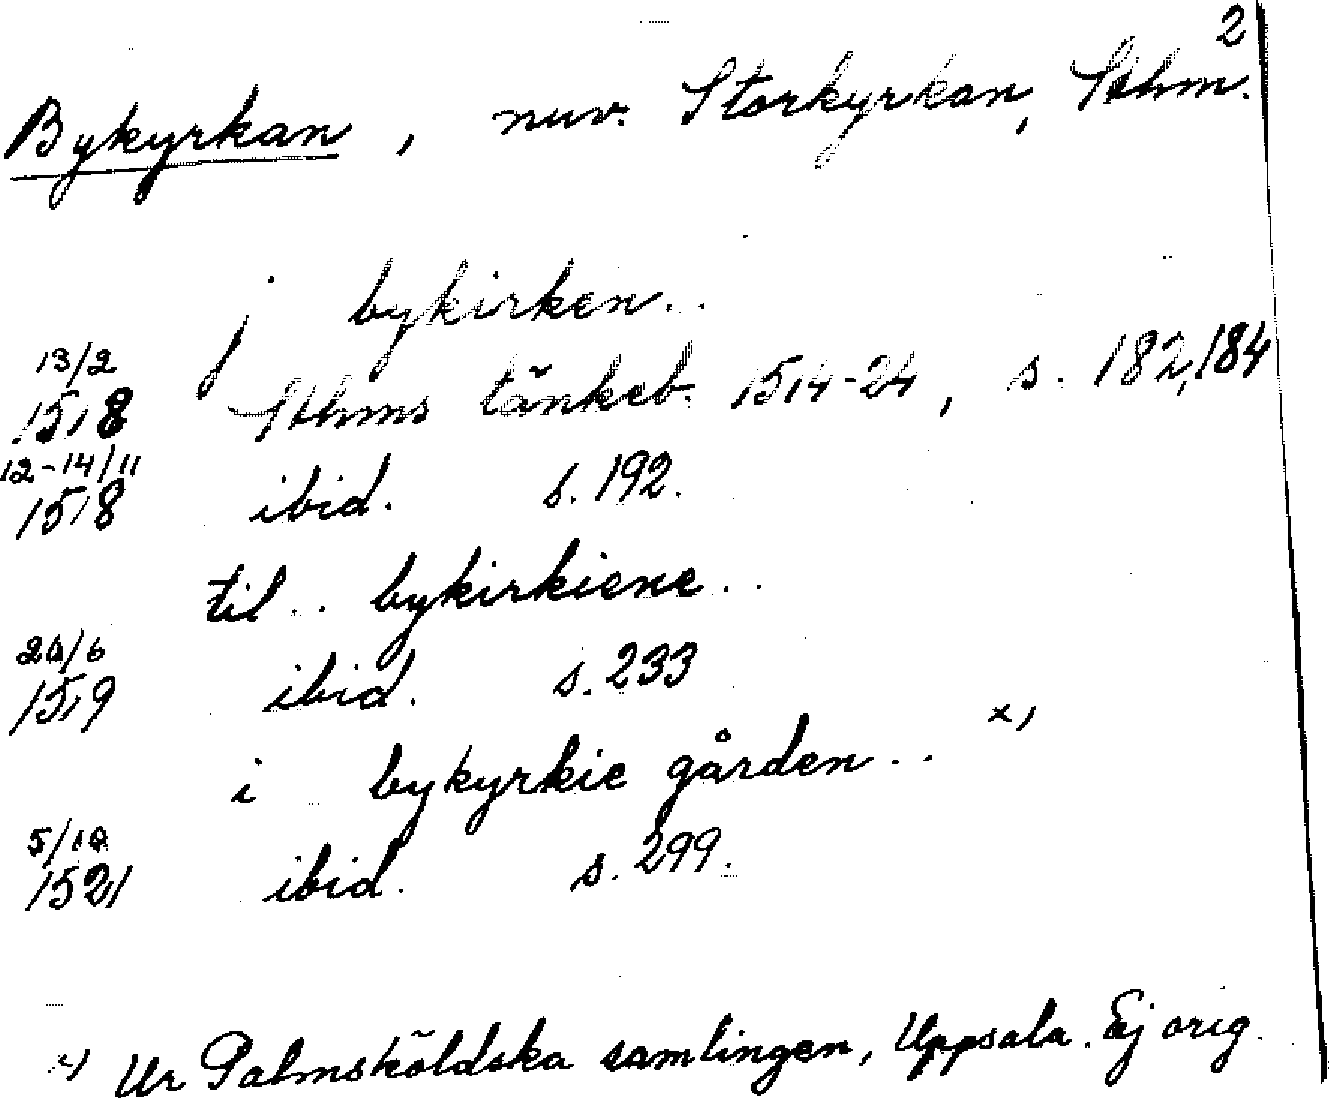 2
Bykyrkan, nuv. Storkyrkan, Sthm.
j bykirken..
13/2
1518 Sthms tänkeb. 1514-24, s. 182, 184
12-14/11
1518 ibid. s. 192.
til .. bykirkiene ..
20/6
1519 ibid. s. 233
i bykyrkie gården .. x)
5/10
1521 ibid. s. 299.
x) Ur Palmsköldska samlingen, Uppsala. Ej orig.